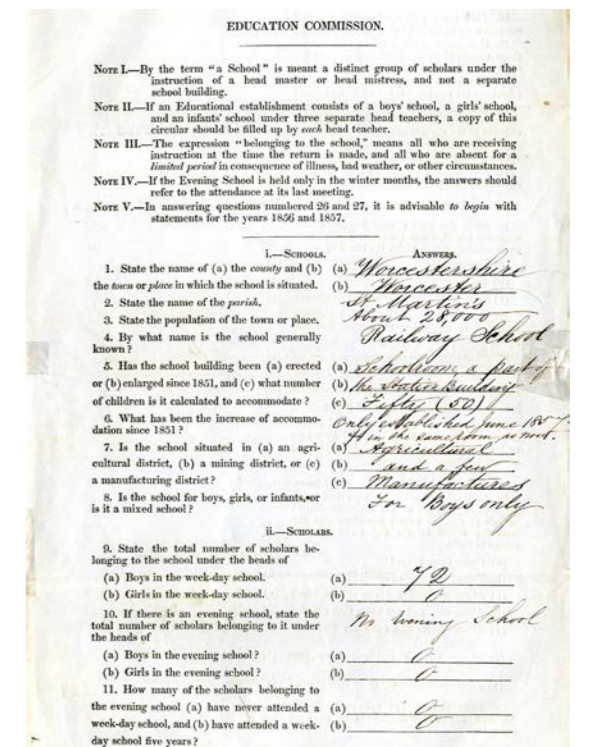 EDUCATION COMMISSION.
NOTE I.—By the term "a School" is meant a distinct group of scholars under the
instruction of a head master or head mistress, and not a separate
school building.
NOTE II.—If an Educational establishment consists of a boys' school, a girls' school,
and an infants' school under three separate head teachers, a copy of this
circular should be filled up by each head teacher.
NOTE III.—The expression "belonging to the school," means all who are receiving
instruction at the time the return is made, and all who are absent for a
limited period in consequence of illness, bad weather, or other circumstances.
NOTE IV.—If the Evening School is held only in the winter months, the answers should
refer to the attendance at its last meeting.
NOTE V.—In answering questions numbered 26 and 27, it is advisable to begin with
statements for the years 1856 and 1857.
i.—SCHOOLS. ANSWERS.
1. State the name of (a) the county and (b) (a) Worcestershire
the town or place in which the school is situated. (b) Worcester
2. State the name of the parish. St Martin's
3. State the population of the town or place. About 28,000
4. By what name is the school generally Railway School
known?
5. Has the school building been (a) erected (a) Schoolroom, a part of
or (b) enlarged since 1851, and (c) what number (b) the Station Building
of children is it calculated to accommodate? (c) Fifty (50)
6. What has been the increase of accommo- Only established June 1857
dation since 1851? in the same room as now.
7. Is the school situated in (a) an agri- (a) Agricultural
cultural district, (b) a mining district, or (c) (b) and a few
a manufacturing district? (c) Manufactures
8. Is the school for boys, girls, or infants, or For Boys only
is it a mixed school?
ii.—SCHOLARS.
9. State the total number of scholars be-
longing to the school under the heads of
(a) Boys in the week-day school. (a) 72
(b) Girls in the week-day school. (b) 0
10. If there is an evening school, state the No Evening School
total number of scholars belonging to it under
the heads of
(a) Boys in the evening school? (a) 0
(b) Girls in the evening school? (b) 0
11. How many of the scholars belonging to
the evening school (a) have never attended a (a) 0
week-day school, and (b) have attended a week- (b) 0
day school five years?